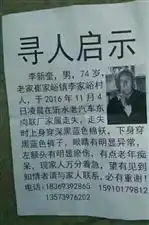 寻人启示
李新奎,男,74岁,
老家崔家峪镇李家峪村
人,于2016年11月4
日凌晨在沂水老汽车东
肉联厂家属走失,走失
时上身穿深黑蓝色棉袄,下身穿
黑蓝色裤子,眼睛有明显异常,
左额头有明显疤伤,有点老年痴
呆,现家人万分着急,望有见到
知情者请与家人联系,必有重谢!
电话:18369392865 15910179812
13573976202